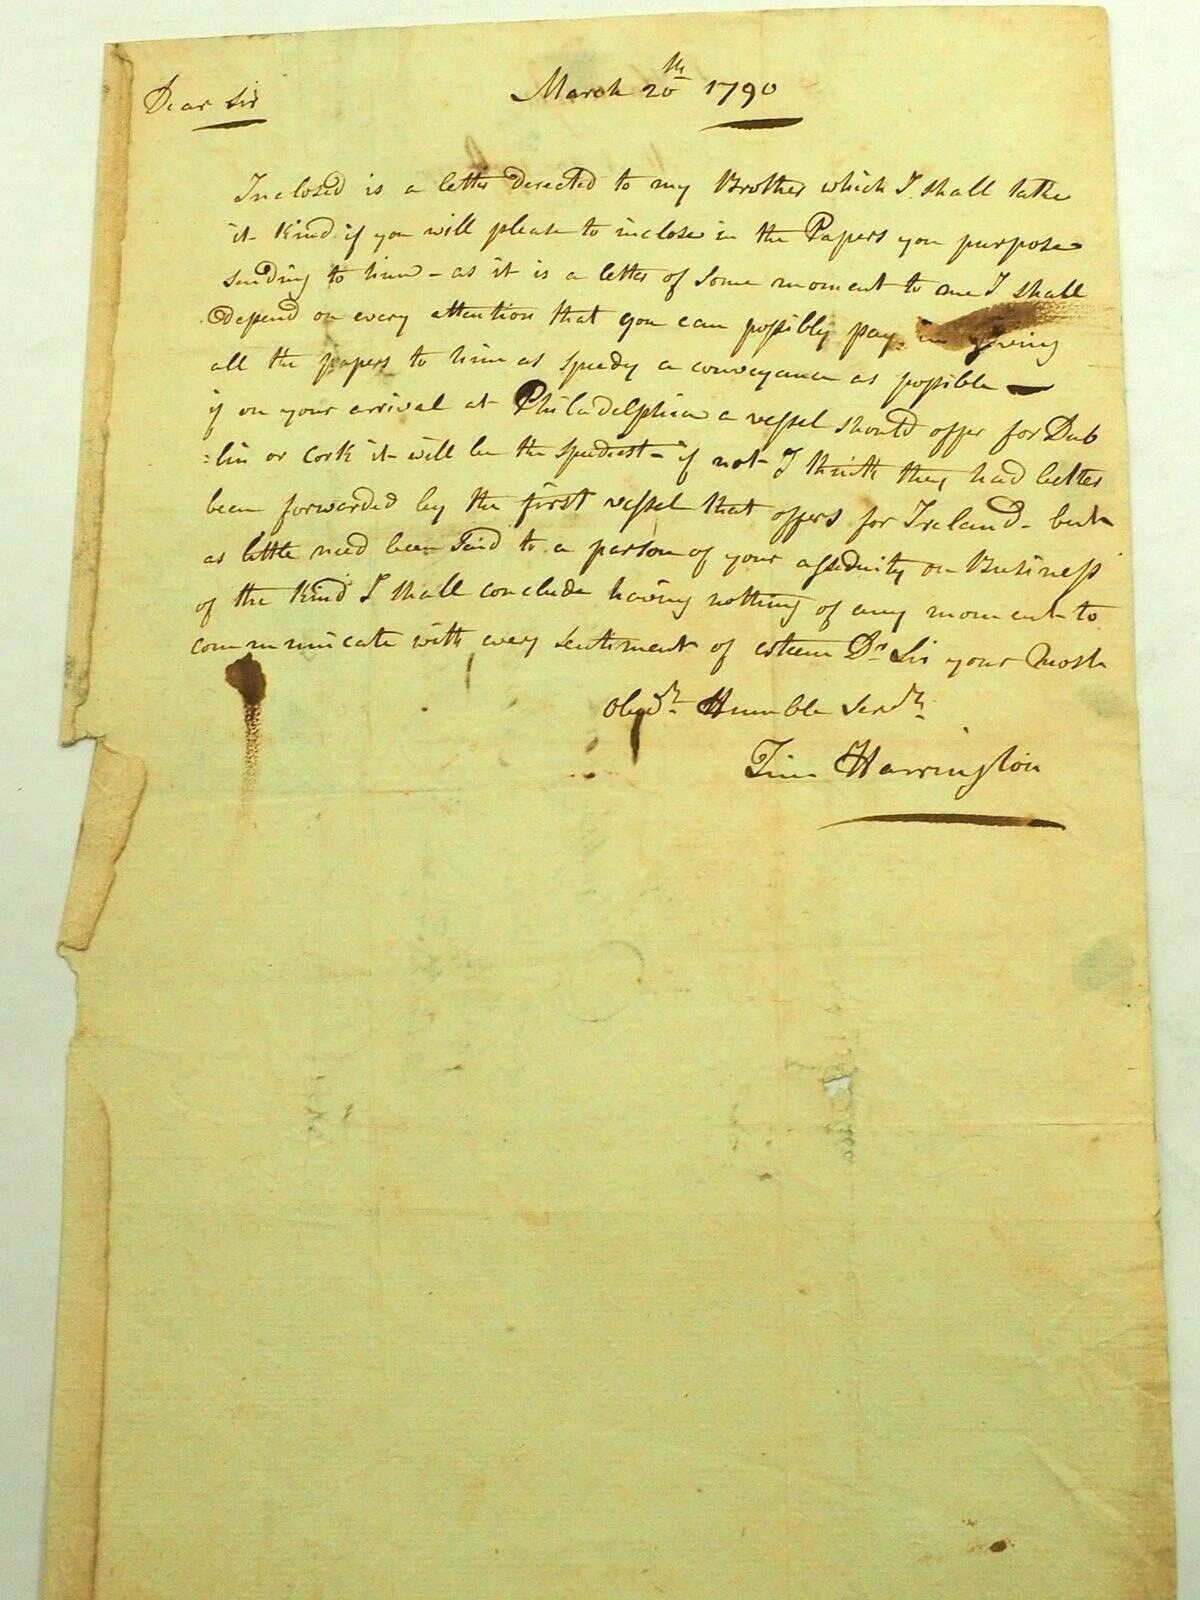 Dear Sir March 20th 1790
Inclosed is a letter derected to my Brother which I shall take
it kind if you will please to inclose in the Papers you purpose
sending to him - as it is a letter of some moment to me I shall
depend on every attention that you can possibly pay in giving
all the papers to him as speedy a conveyance as possible —
if on your arrival at Philadelphia a vessel should offer for Dub
=lin or Cork it will be the speediest - if not I think they had better
been forwarded by the first vessel that offers for Ireland - but
as little need been said to a person of your assiduity on Business
of the kind I shall conclude having nothing of any moment to
communicate with every sentiment of esteem Dr Sir your Most
Obedt Humble Servt
Tim Harrington